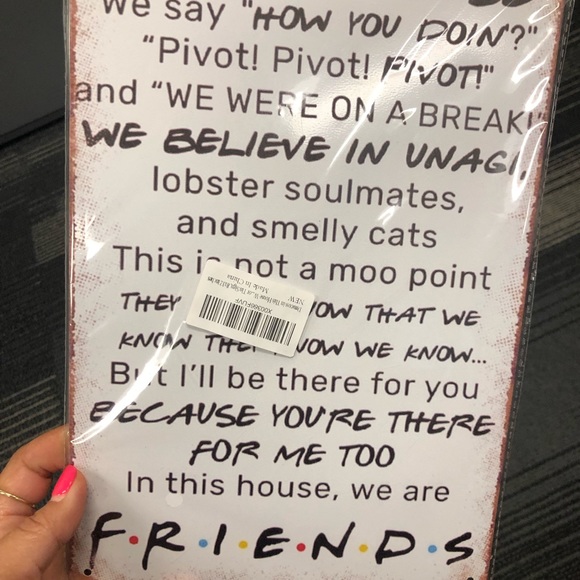 we say "HOW YOU DOIN'?"
"Pivot! Pivot! PIVOT!"
and "WE WERE ON A BREAK!"
WE BELIEVE IN UNAGI,
lobster soulmates,
and smelly cats
This is not a moo point
THEY NOW THAT WE
KNOW THEY NOW WE KNOW...
But I'll be there for you
BECAUSE YOU'RE THERE
FOR ME TOO
In this house, we are
F•R•I•E•N•D•S
NEW
Made in China